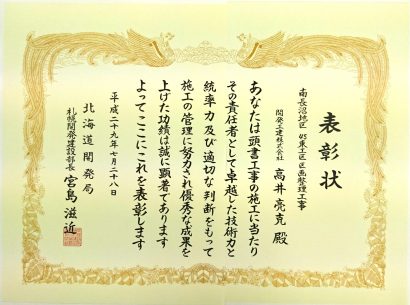 表彰状
南長沼地区 45東工区区画整理工事
開発工建株式会社
高井亮克 殿
あなたは頭書工事の施工に当たり
その責任者として卓越した技術力と
統率力及び適切な判断をもって
施工の管理に努力され優秀な成果を
上げた功績は誠に顕著であります
よってここにこれを表彰します
平成二十九年七月二十八日
北海道開発局
札幌開発建設部長 宮島滋近